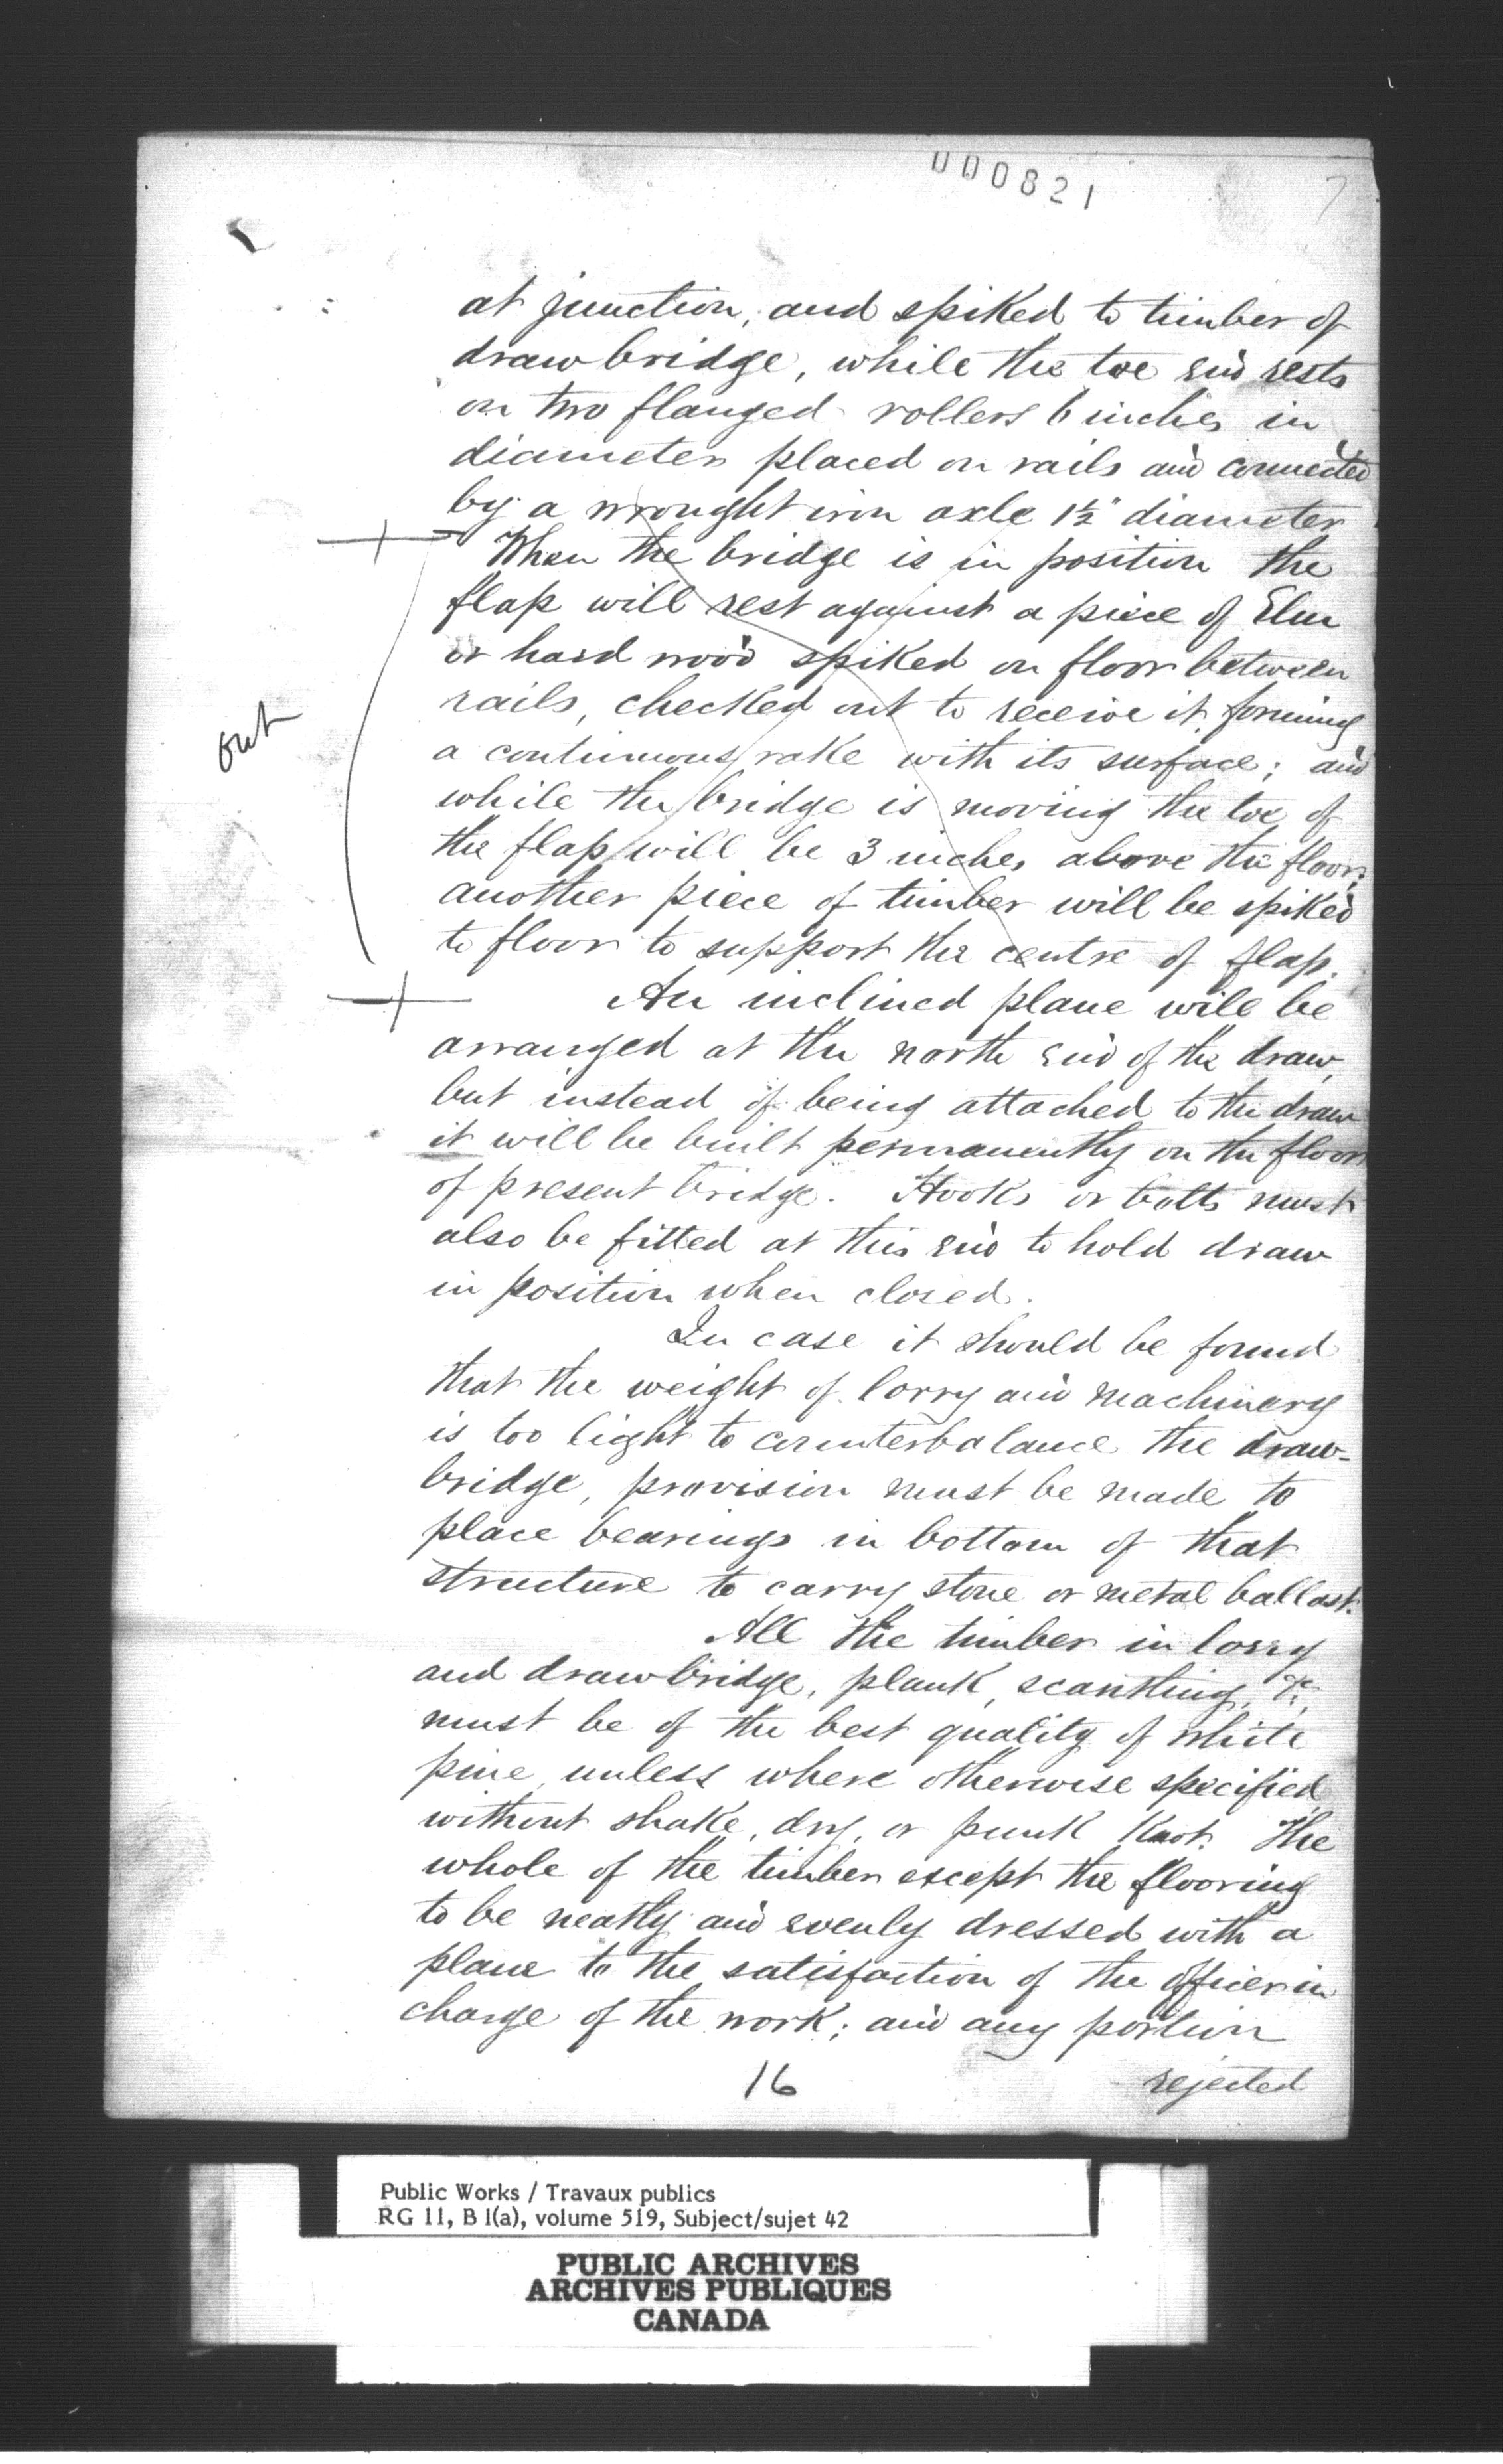 000821
7
at junction, and spiked to timber of
drawbridge, while the toe end rests
on two flanged rollers 6 inches in
diameter placed on rails and connected
by a wrought iron axle 1½" diameter
When the bridge is in position the
flap will rest against a piece of Elm
or hard wood spiked on floor between
rails, checked out to receive it forming
out
a continuous rake with its surface; and
while the bridge is moving the toe of
the flap will be 3 inches above the floor;
another piece of timber will be spiked
to floor to support the centre of flap.
An inclined plane will be
arranged at the north end of the draw,
but instead of being attached to the draw
it will be built permanently on the floor
of present bridge. Hooks or bolts must
also be fitted at this end to hold draw
in position when closed.
In case it should be found
that the weight of lorry and machinery
is too light to counterbalance the draw-
bridge, provision must be made to
place bearings in bottom of that
structure to carry stone or metal ballast.
All the timber in lorry
and drawbridge, plank, scantling, &c,
must be of the best quality of white
pine, unless where otherwise specified
without shake, dry, or punk knot. The
whole of the timber except the flooring
to be neatly and evenly dressed with a
plane to the satisfaction of the officer in
charge of the work; and any portion
16
rejected
Public Works / Travaux publics
RG 11, B 1(a), volume 519, Subject/sujet 42
PUBLIC ARCHIVES
ARCHIVES PUBLIQUES
CANADA